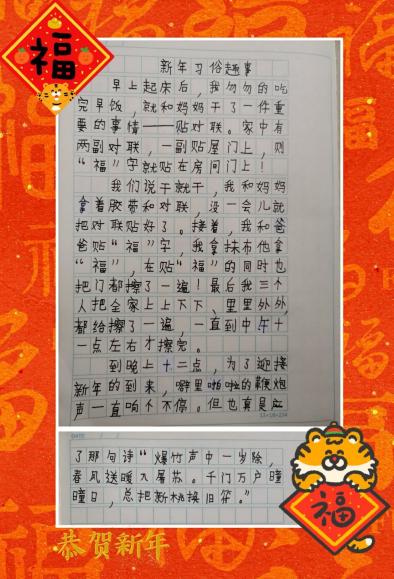 福
新年习俗趣事
早上起床后，我匆匆的吃
完早饭，就和妈妈干了一件重
要的事情——贴对联。家中有
两副对联，一副贴屋门上，则
“福”字就贴在房间门上！
我们说干就干，我和妈妈
拿着胶带和对联，没一会儿就
把对联贴好了。接着，我和爸
爸贴“福”字，我拿抹布他拿
“福”，在贴“福”的同时也
把门都擦了一遍！最后我三个
人把全家上上下下、里里外外，
都给擦了一遍，一直到中午十
一点左右才擦完。
到晚上十二点，为了迎接
新年的到来，噼里啪啦的鞭炮
声一直响个不停。但也真是应
了那句诗“爆竹声中一岁除，
春风送暖入屠苏。千门万户曈
曈日，总把新桃换旧符。”
福
恭贺新年